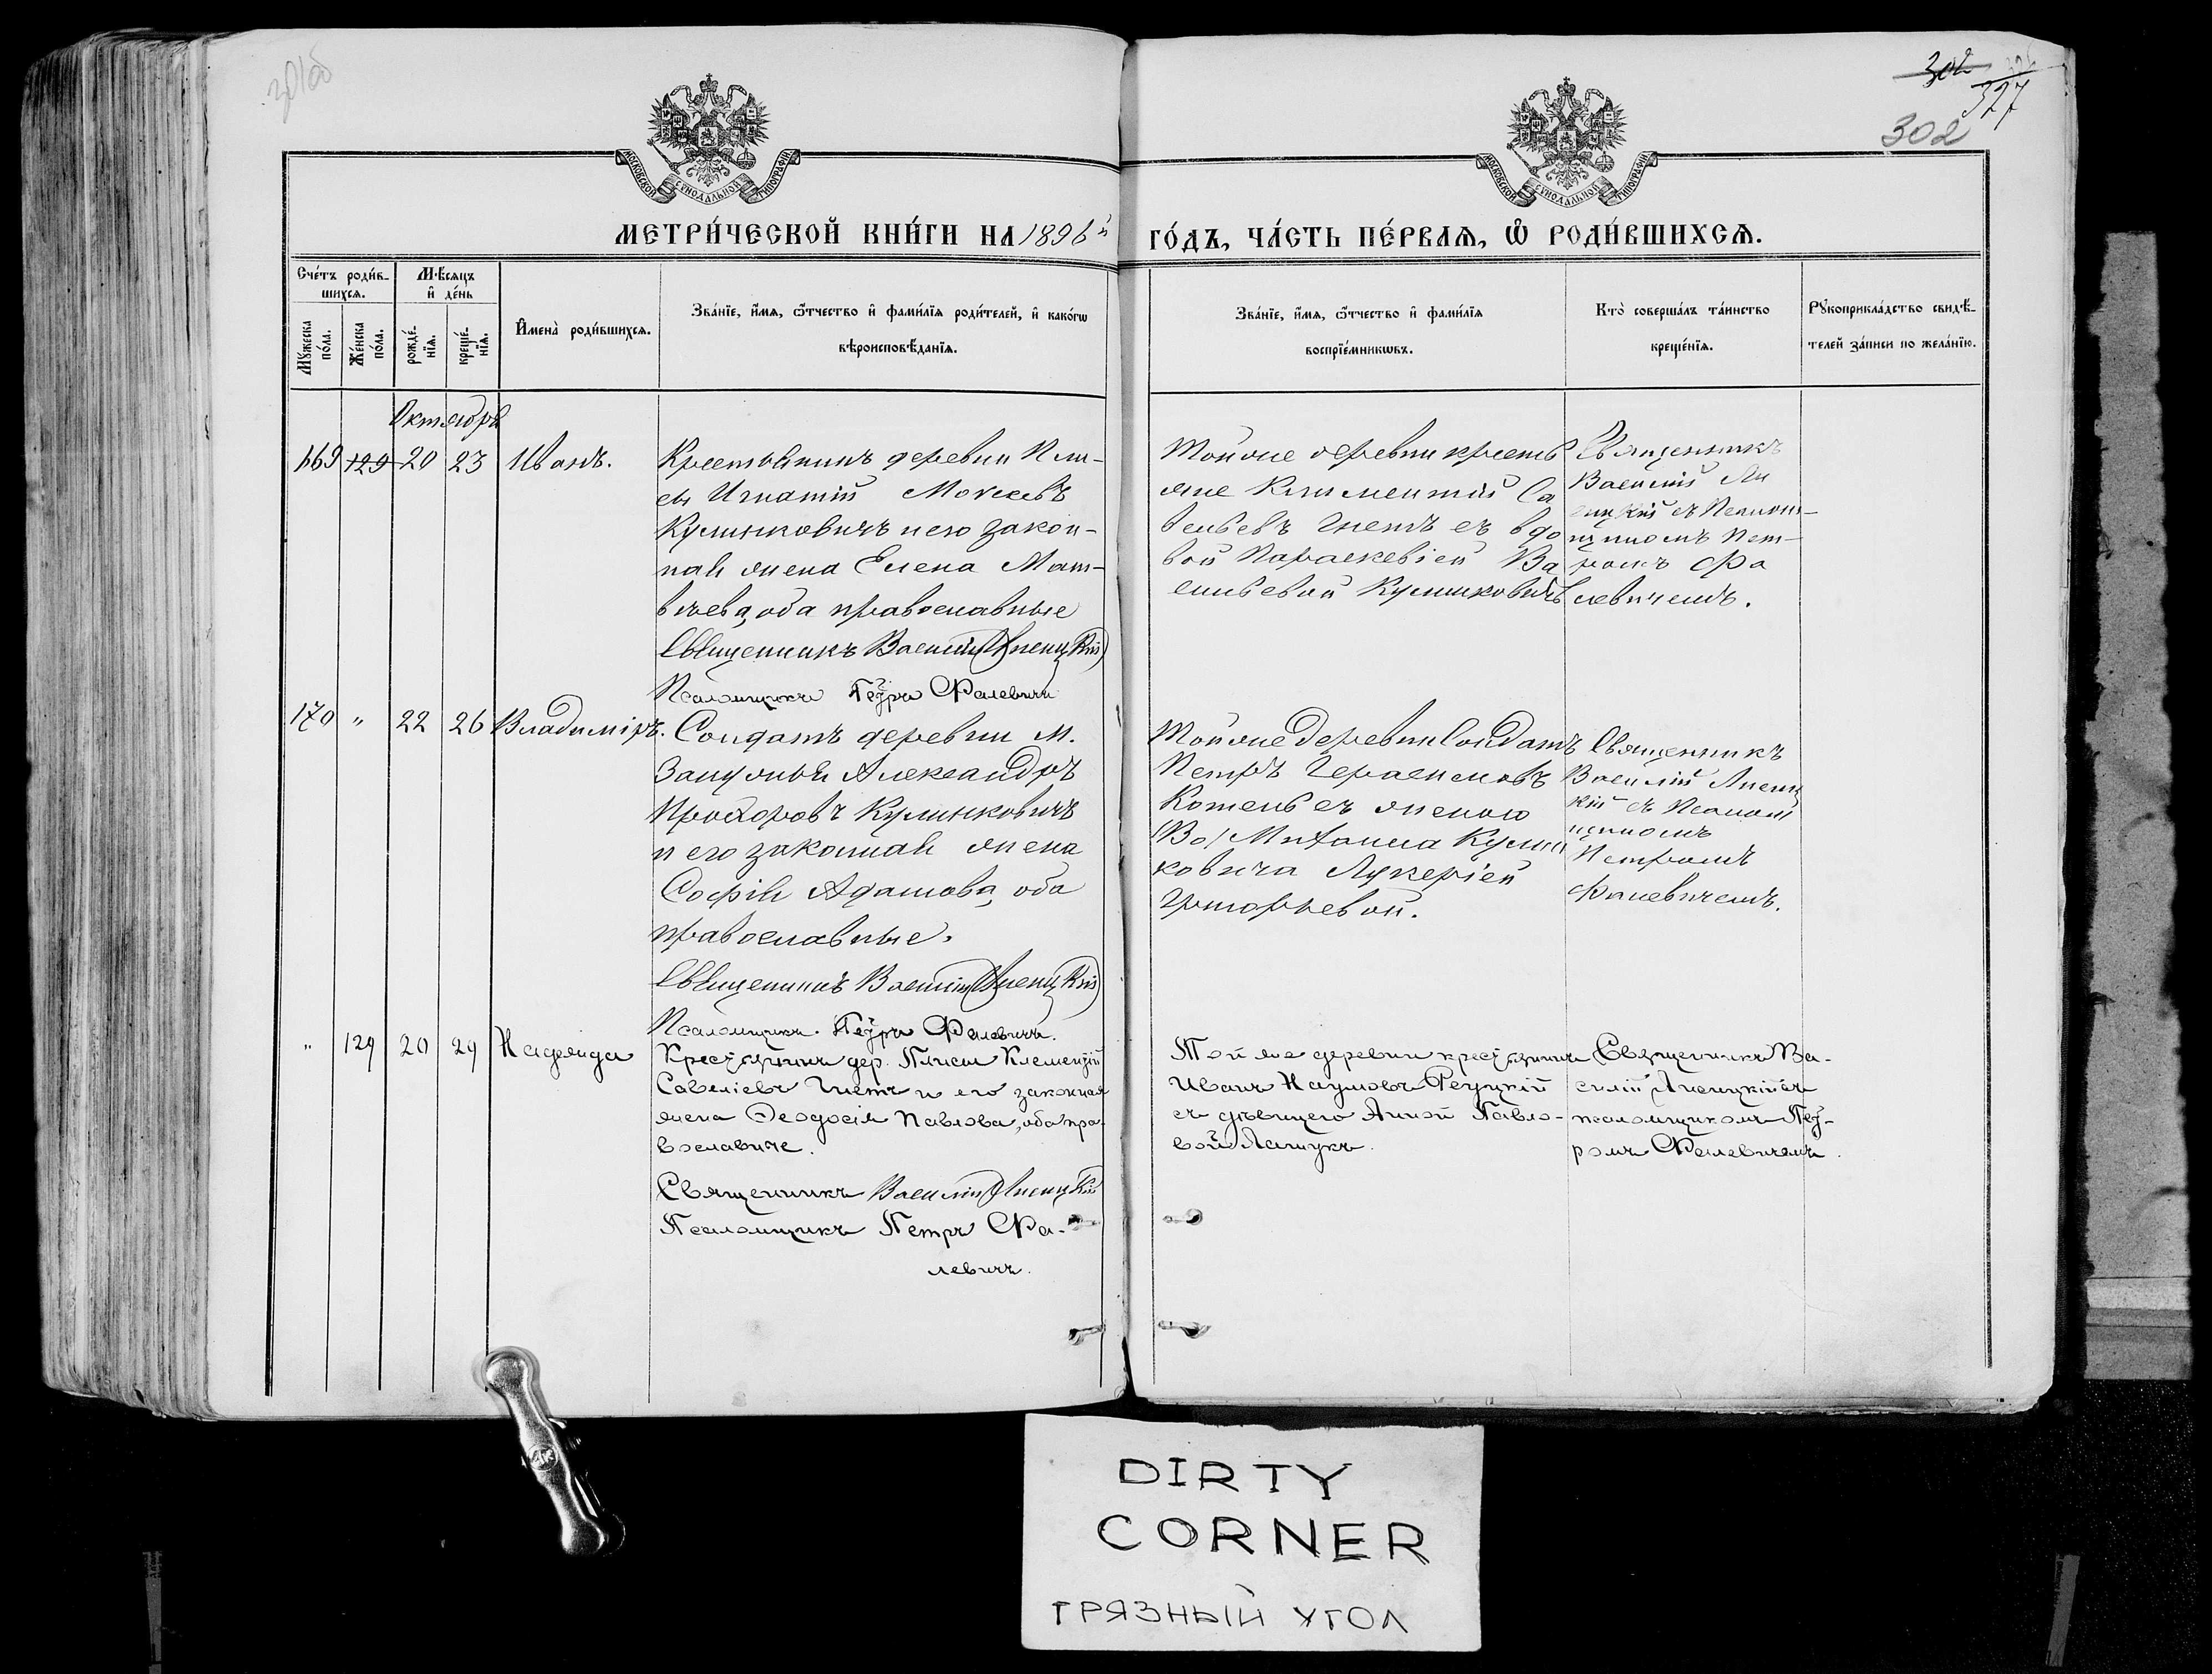 301об
302
327
302
МОСКОВСКОЙ СѴНОДАЛЬНОЙ ТИПОГРАФІИ
МОСКОВСКОЙ СѴНОДАЛЬНОЙ ТИПОГРАФІИ
МЕТРИ́ЧЕСКОЙ КНИ́ГИ НА 1896й
ГО́ДЪ, ЧА́СТЬ ПЕ́РВАЯ, Ѡ҆ РОДИ́ВШИХСЯ.
Сче́тъ роди́в-
шихся.
Мѣ́сяцъ
и҆ де́нь
Мꙋ́жеска по́ла.
Же́нска по́ла.
рожде́-
нїя.
креще́-
нїя.
И҆мена̀ роди́вшихся.
Зва́нїе, и҆́мя, ѻ҆́тчество и҆ фами́лїя роди́телей, и҆ како́гѡ
вѣроисповѣ́данїя.
Зва́нїе, и҆́мя, ѻ҆́тчество и҆ фами́лїя
воспрїе́мникѡвъ.
Кто̀ соверша́лъ та́инство
креще́нїя.
Рꙋкоприкла́дство свидѣ́-
телей за́писи по жела́нїю.
Октябрь
169 129 20 23 Иванъ.
Крестьянинъ деревни Пли-
сы Игнатій Мокеевъ
Кулинковичъ и его закон-
ная жена Елена Мат-
вѣева, оба православные
Священникъ Василій Лисицкій
Псаломщикъ Петръ Фалевичъ
Той же деревни крестья
яне Климентій Са
вельевъ Гнетъ съ вдо
вой Параскевіей Ва
сильевой Кулинковичъ
Священникъ
Василій Ли
сицкій съ Псалом-
щикомъ Пет-
ромъ Фа
левичемъ.
170 " 22 26 Владиміръ.
Солдатъ деревни М.
Александръ
Прохоровъ Кулинковичъ
и его законная жена
Софія Адамова, оба
православные.
Священникъ Василій Лисицкій
Псаломщикъ Петръ Фалевичъ.
Той же деревни Солдатъ
Петръ Герасимовъ
съ женою
Михаила Кулин
ковича Лукеріей
Григорьевой.
Священникъ
Василій Лисиц
кій съ Псалом
щикомъ
Петромъ
Фалевичемъ.
" 129 20 29 Надежда
Крестьянинъ дер. Плисы Клементій
Савеліевъ Гнетъ и его законная
жена Ѳеодосія Павлова, оба пра-
вославные.
Священникъ Василій Лисицкій
Псаломщикъ Петръ Фа-
левичъ.
Той же деревни крестьянинъ
Иванъ Наумовъ Реуцкій
съ дѣвицею Анной Павло-
вой Лащукъ.
Священникъ Ва-
силій Лисицкій съ
псаломщикомъ Пет-
ромъ Фалевичемъ.
DIRTY
CORNER
ГРЯЗНЫЙ УГОЛ